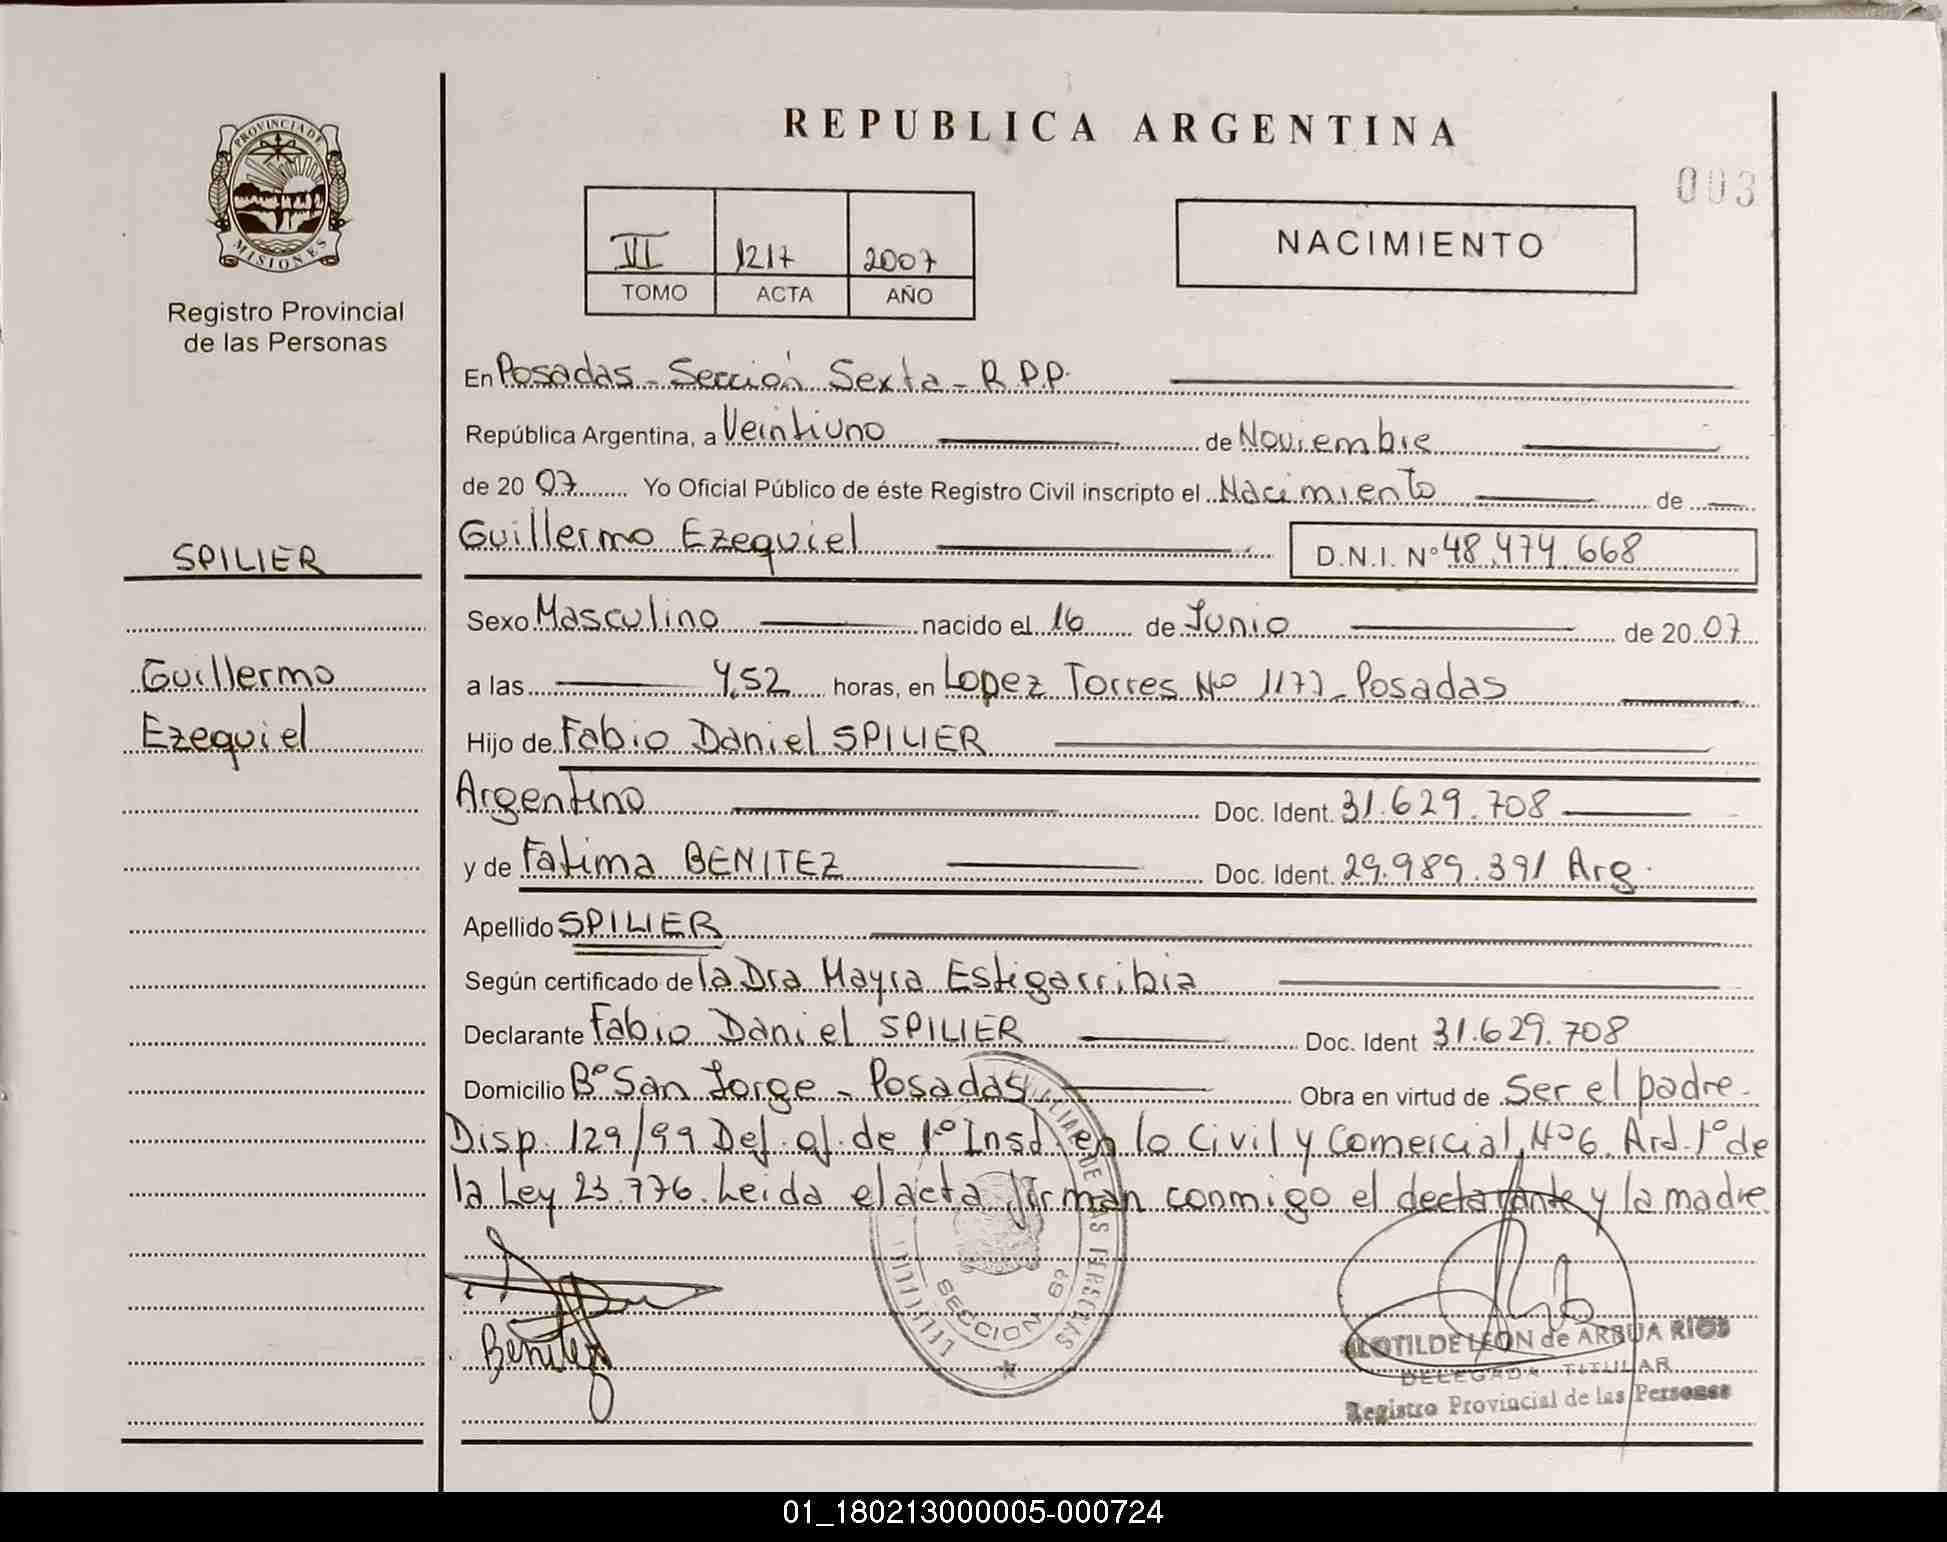 REPUBLICA ARGENTINA
003
PROVINCIA DE
MISIONES
Registro Provincial
de las Personas
VI 1217 2007
TOMO ACTA AÑO
NACIMIENTO
En Posadas - Sección Sexta - R.P.P.
República Argentina, a Veintiuno de Noviembre
de 20 07 Yo Oficial Público de éste Registro Civil inscripto el Nacimiento de
Guillermo Ezequiel D.N.I. Nº 48.474.668
SPILIER
Sexo Masculino nacido el 16 de Junio de 20 07
Guillermo
a las 4,52 horas, en Lopez Torres Nº 1177 - Posadas
Ezequiel
Hijo de Fabio Daniel SPILIER
Argentino Doc. Ident. 31.629.708
y de Fatima BENITEZ Doc. Ident. 29.989.391 Arg.
Apellido SPILIER
Según certificado de la Dra Mayra Estigarribia
Declarante Fabio Daniel SPILIER Doc. Ident 31.629.708
Domicilio Bº San Jorge - Posadas Obra en virtud de Ser el padre.
Disp. 129/99 Def. of. de 1º Inst. en lo Civil y Comercial Nº 6. Art. 1º de
la Ley 23.776. Leida el acta firman conmigo el declarante y la madre
SECCION 6ª
Benitez
CLOTILDE LEON de ARBUA RIOS
DELEGADA TITULAR
Registro Provincial de las Personas
01_180213000005-000724